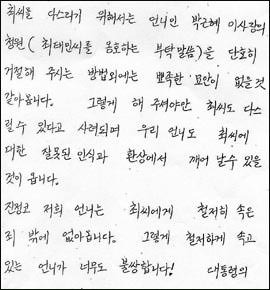 최씨을 다스리기 위해서는 언니인 박근혜 이사장의
청원( 최태민씨를 옹호하는 부탁말씀)을 단호히
거절해 주시는 방법외에는 뾰족한 묘안이 없을것
같아옵니다. 그렇게 해 주셔야만 최씨도 다스
릴수 있다고 사려되며 우리 언니도 최씨에
대한 잘못된 인식과 환상에서 깨어 날수 있을
것이 옵니다.
진정코 저희 언니는 최씨에게 철저히 속은
죄 밖에 없아옵니다. 그렇게 철저하게 속고
있는 언니가 너무도 불쌍합니다! 대통령의